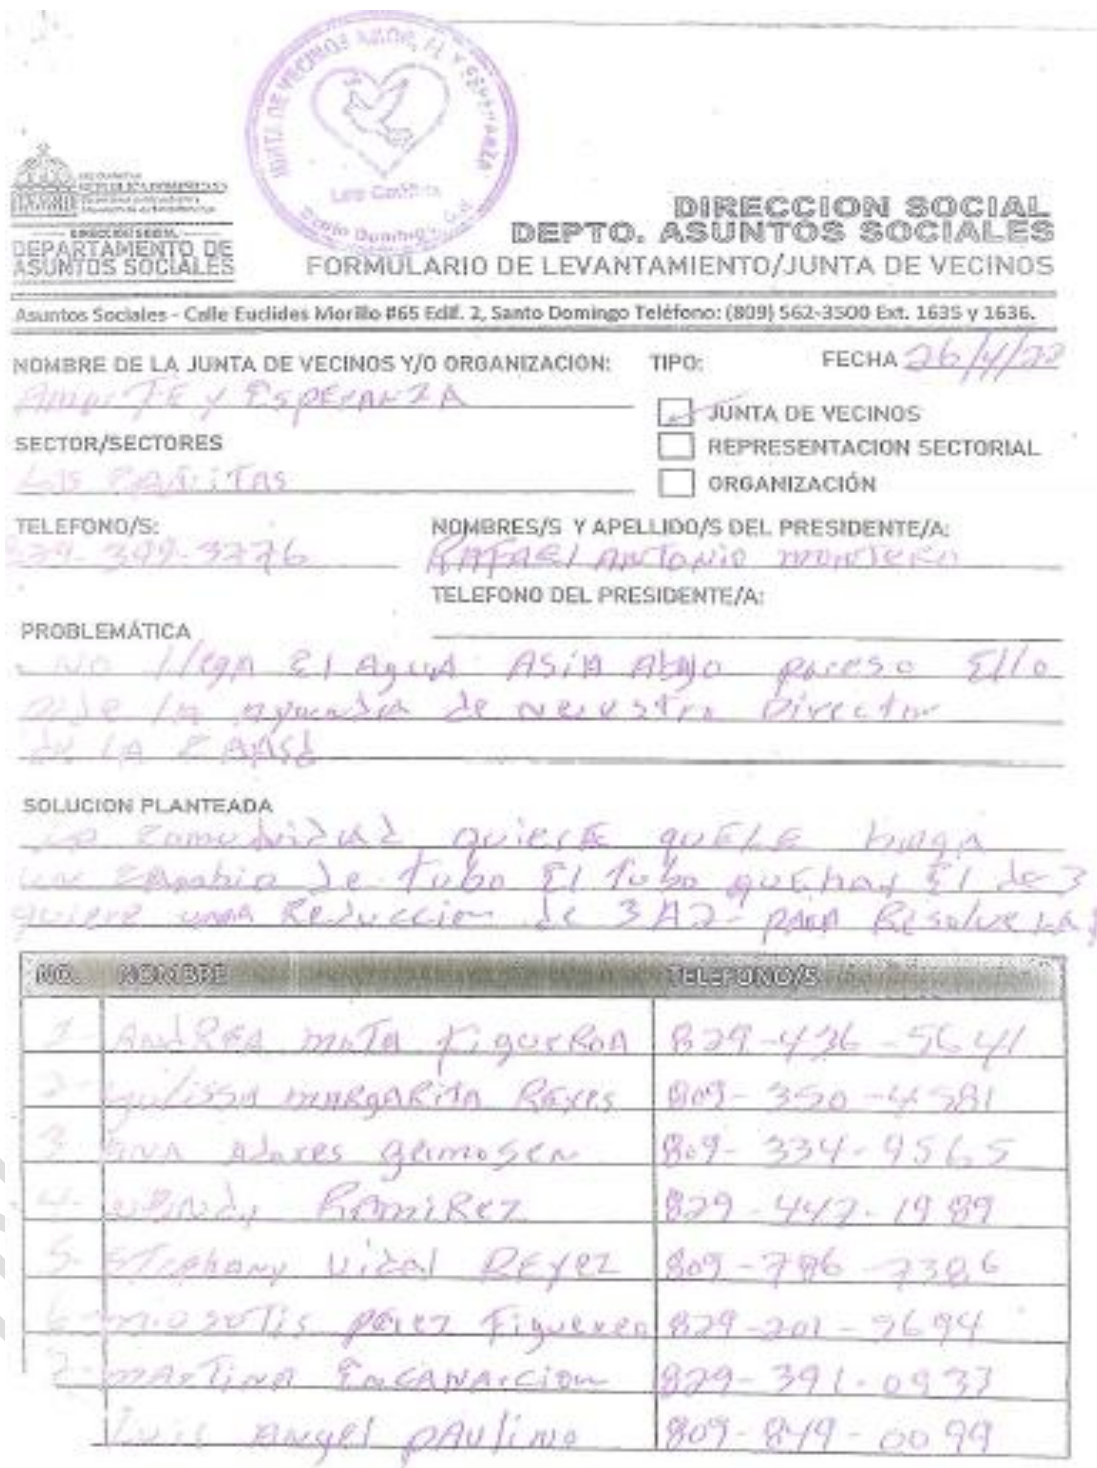 JUNTA DE VECINOS AMOR, FE Y ESPERANZA
Santo Domingo
REPUBLICA DOMINICANA
DIRECCION SOCIAL
DEPARTAMENTO DE
ASUNTOS SOCIALES
DIRECCION SOCIAL
DEPTO. ASUNTOS SOCIALES
FORMULARIO DE LEVANTAMIENTO/JUNTA DE VECINOS
Asuntos Sociales - Calle Euclides Morillo #65 Edif. 2, Santo Domingo Teléfono: (809) 562-3500 Ext. 1635 y 1636.
NOMBRE DE LA JUNTA DE VECINOS Y/O ORGANIZACION: TIPO: FECHA 26/4/22
Amor FE y EspeRANZA
JUNTA DE VECINOS
SECTOR/SECTORES
REPRESENTACION SECTORIAL
LAS CAÑITAS
ORGANIZACIÓN
TELEFONO/S: NOMBRES/S Y APELLIDO/S DEL PRESIDENTE/A:
829-399-3276 RAFAEl ANTONIO MONTERO
TELEFONO DEL PRESIDENTE/A:
PROBLEMÁTICA
NO llegA El AguA ASiA AbAjo por eso Ello
pide la de Nuestro Director
de LA CAASd
SOLUCION PLANTEADA
La comunidad quiere quELE haga
un cambio de tubo El tubo quE hay El de 3
quiere una Reduccion de 3 A 2 pARA Resolve
NO. NOMBRE TELEFONO/S
1- AndREA mATA FigueRoA 829-436-5641
2- yulissA mARgARitA Reyes 809-350-4581
3 ANA germosen 809-334-9565
4- WENdy RAmiRez 829-447-1989
5- STephany Vidal REyez 809-786-7386
6- miosoTis perez Figuereo 829-201-9694
7- mARTiNA EncARNAcion 829-391-0933
Luis ANgel pAuliNo 809-849-0099